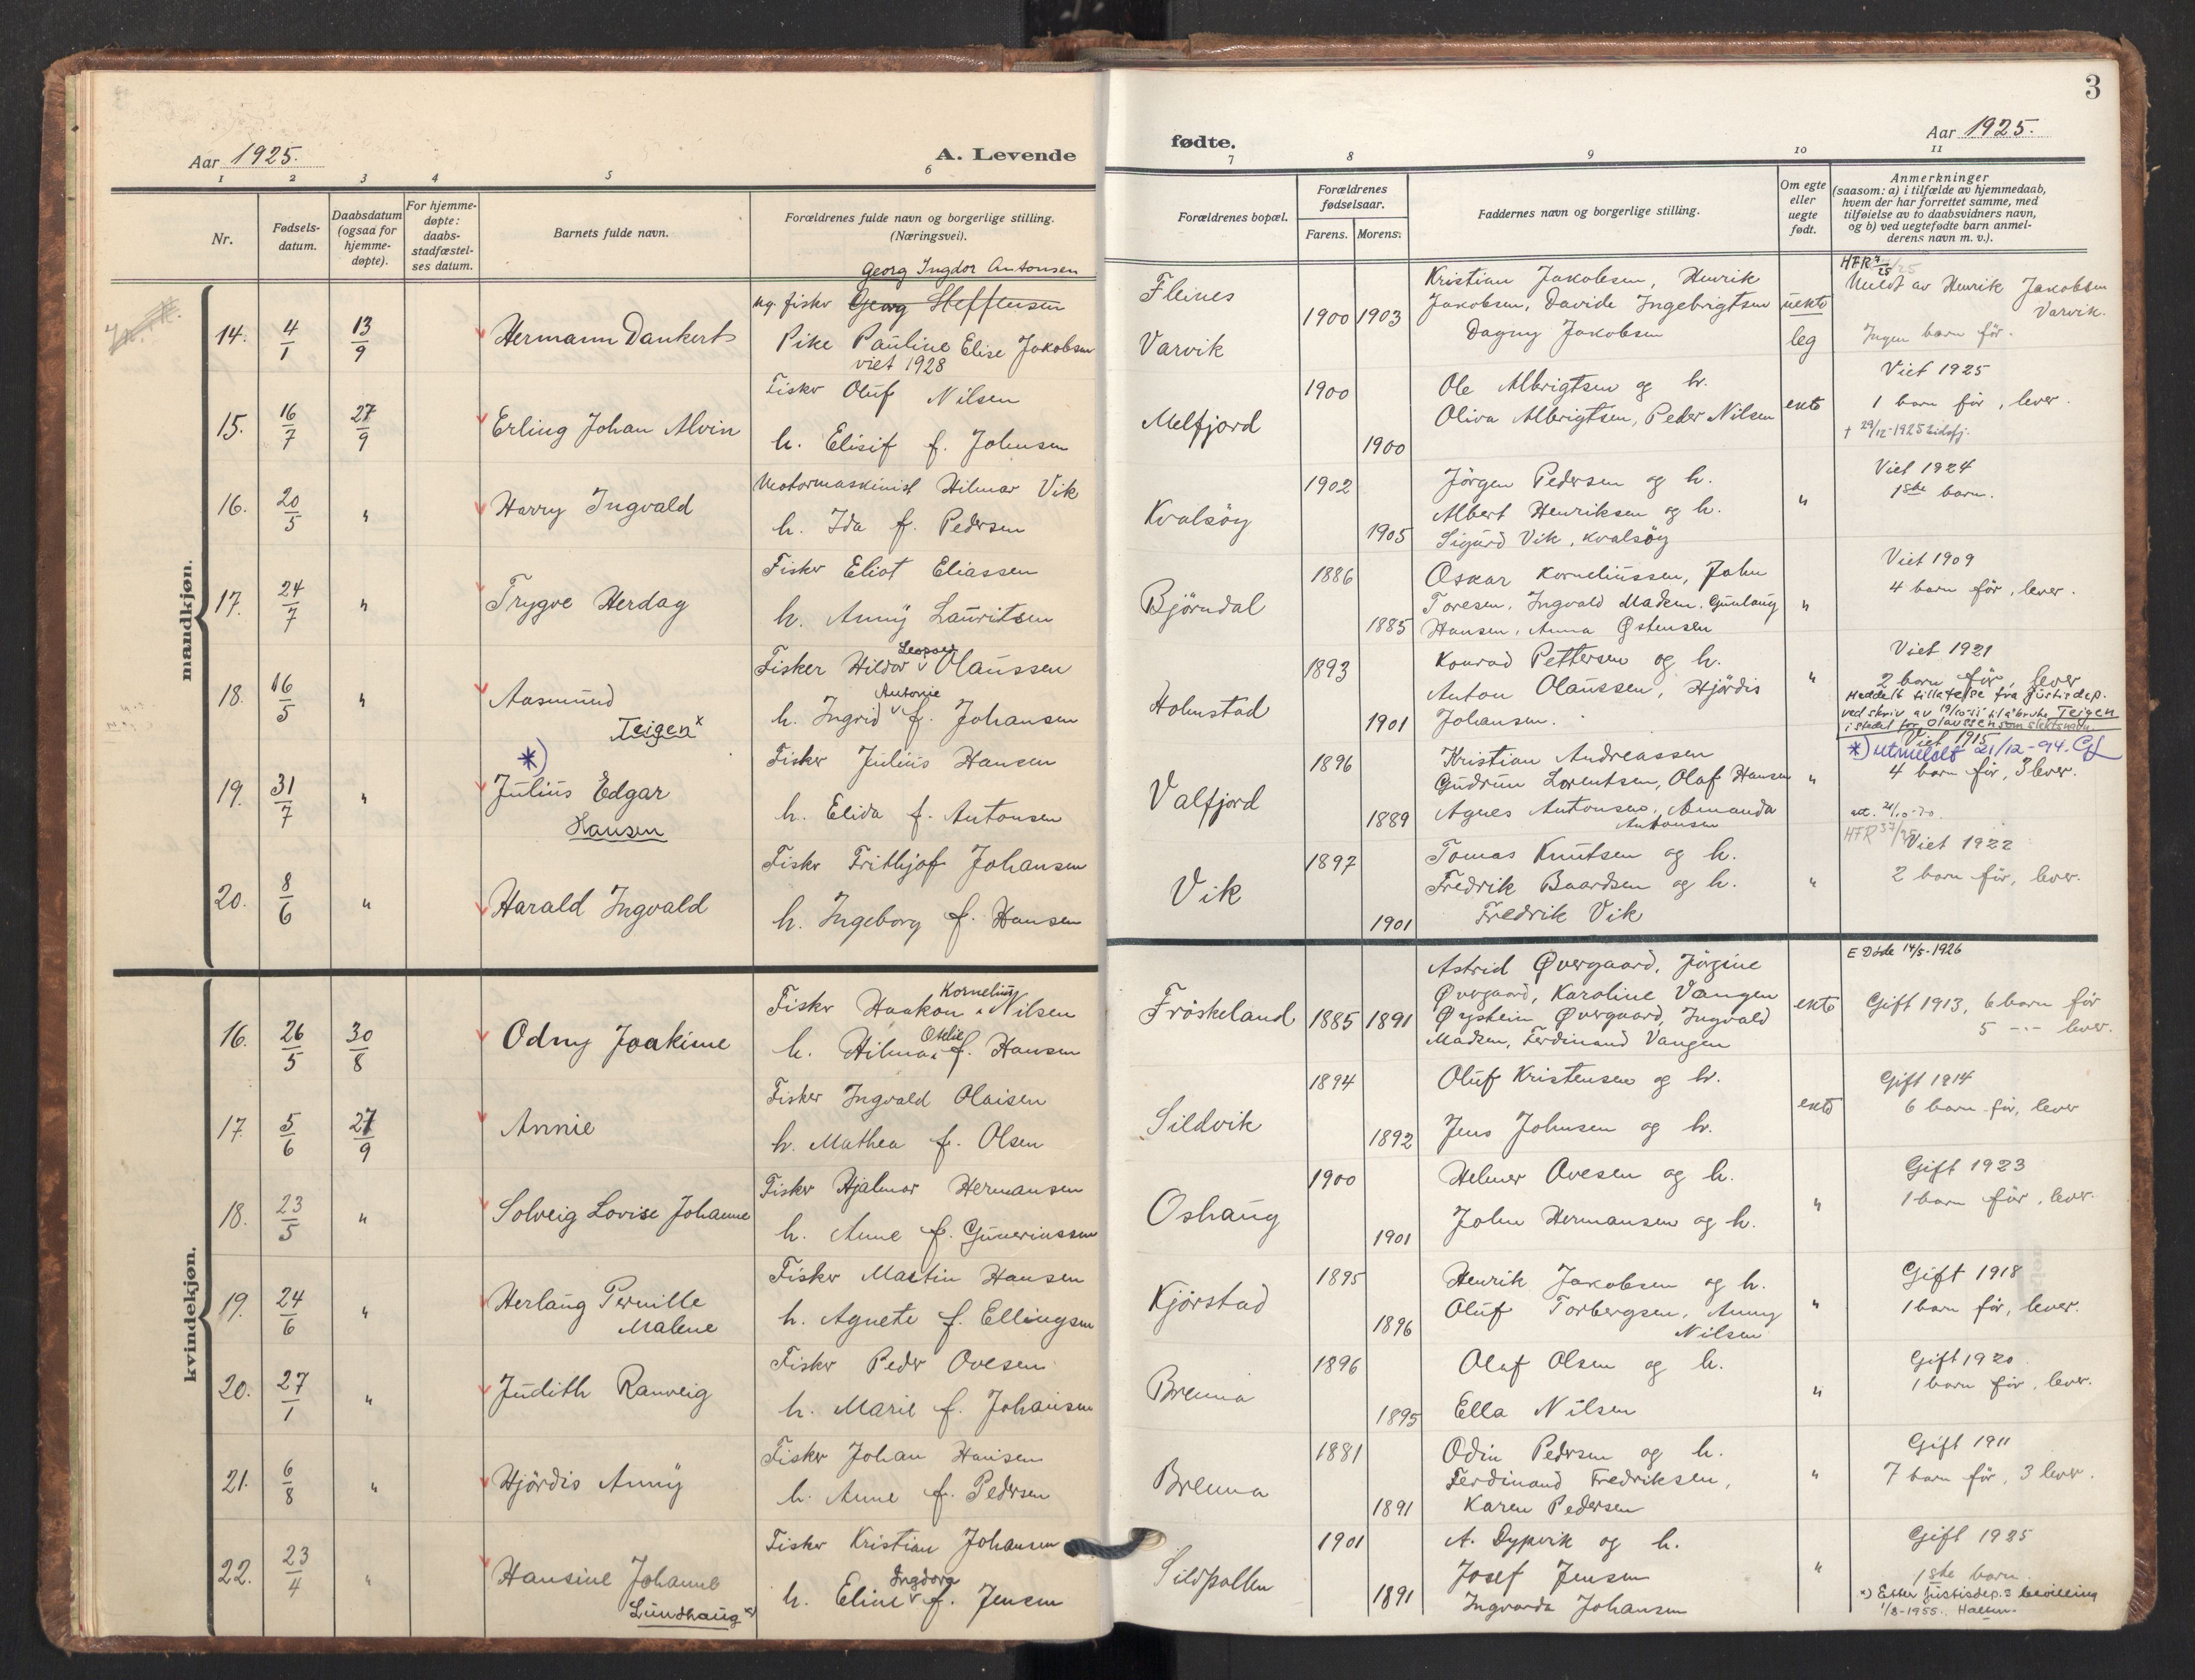 3
Aar 1925.
A. Levende
fødte.
Aar 1925.
1 2 3 4 5 6 7 8 9 10 11
Nr.
Fødsels-
datum.
Daabsdatum
(ogsaa for
hjemme-
døpte).
For hjemme-
døpte:
daabs-
stadfæstel-
ses datum.
Barnets fulde navn.
Forældrenes fulde navn og borgerlige stilling.
(Næringsvei).
Forældrenes bopæl.
Forældrenes
fødselsaar.
Farens. Morens.
Faddernes navn og borgerlige stilling.
Om egte
eller
uegte
født.
Anmerkninger
(saasom: a) i tilfælde av hjemmedaab,
hvem der har forrettet samme, med
tilføielse av to daabsvidners navn,
og b) ved uegtefødte barn anmel-
derens navn m. v.).
mandkjøn.
14. 4/1 13/9 Hermann Dankert
Georg Ingdor Antonsen
ug. fisker Georg Steffensen
Pike Pauline Elise Jakobsen
viet 1928
Fleines
Varvik
1900 1903
Kristian Jakobsen, Henrik
Jakobsen, Davide Ingebrigtsen
Dagny Jakobsen
uekte
leg
HFR
Meldt av Henrik Jakobsen
Varvik.
Ingen barn før.
15. 16/7 27/9 Erling Johan Alvin
Fisker Oluf Nilsen
h. Elisif f. Johnsen
Melfjord
1900
1900
Ole Albrigtsen og h.
Oliva Albrigtsen, Peder Nilsen
ekte
Viet 1925
1 barn før, lever.
† 29/12-1925 Eidsfj.
16. 20/5 " Harry Ingvald
Motormaskinist Hilmar Vik
h. Ida f. Pedersen
Kvalsöy
1902
1905
Jörgen Pedersen og h.
Albert Henriksen og h.
Sigurd Vik, Kvalsöy
"
Viet 1924
1ste barn.
17. 24/7 " Trygve Herdag
Fisker Eliot Eliassen
h. Anny Lauritsen
Björndal
1886
1885
Oskar Korneliussen, John
Toresen, Ingvald Madsen, Gunlaug
Hansen, Anna Østensen
"
Viet 1909
4 barn før, lever.
18. 16/5 " Aasmund
Teigen x
Fisker Hildor Leopold Olaussen
h. Ingrid Antonie f. Johansen
Holmstad
1893
1901
Konrad Pettersen og h.
Anton Olaussen, Hjördis
Johansen.
"
Viet 1921
2 barn før, lever
Meddelt tillatelse fra Justisdep.
ved skriv av til å bruke Teigen
i stedet for Olaussen som slektsnavn
19. 31/7 " *) Julius Edgar
Hansen
Fisker Julius Hansen
h. Elida f. Antonsen
Valfjord
1896
1889
Kristian Andreassen
Gudrun Lorentsen, Olaf Hansen
Agnes Antonsen, Amanda
Antonsen
"
Viet 1915
*) utmeldt 21/12-94.
4 barn før, 3 lever.
20. 8/6 " Harald Ingvald
Fisker Frithjof Johansen
h. Ingeborg f. Hansen
Vik
1897
1901
Tomas Knutsen og h.
Fredrik Baardsen og h.
Fredrik Vik
"
HFR 37/25
Viet 1922
2 barn før, lever.
kvindekjøn.
16. 26/5 30/8 Odny Joakime
Fisker Haakon Kornelius Nilsen
h. Hilma Otelie f. Hansen
Fröskeland
1885 1891
Astrid Øvergaard, Jörgine
Øvergaard, Karoline Vangen
Øystein Øvergaard, Ingvald
Madsen, Ferdinand Vangen
ekte
E Döde 14/5-1926
Gift 1913, 6 barn før
5 -"- lever.
17. 5/6 27/9 Annie
Fisker Ingvald Olaisen
h. Mathea f. Olsen
Sildvik
1894
1892
Oluf Kristensen og h.
Jens Johnsen og h.
ekte
Gift 1914
6 barn før, lever
18. 23/5 " Solveig Lovise Johanne
Fisker Hjalmar Hermansen
h. Anne f. Gunerinssen
Oshaug
1900
1901
Helmer Ovesen og h.
John Hermansen og h.
"
Gift 1923
1 barn før, lever.
19. 24/6 " Herlaug Pernille
Malene
Fisker Martin Hansen
h. Agnete f. Ellingsen
Kjörstad
1895
1896
Henrik Jakobsen og h.
Oluf Torbergsen, Anny
Nilsen
"
Gift 1918
1 barn før, lever.
20. 27/1 " Judith Ranveig
Fisker Peder Ovesen
h. Marie f. Johansen
Brenna
1896
1895
Olaf Olsen og h.
Ella Nilsen
"
Gift 1920
1 barn før, lever.
21. 6/8 " Hjördis Anny
Fisker Johan Hansen
h. Anne f. Pedersen
Brenna
1881
1891
Odin Pedersen og h.
Ferdinand Fredriksen,
Karen Pedersen
"
Gift 1911
7 barn før, 3 lever.
22. 23/4 " Hansine Johanne
Lundhaug x)
Fisker Kristian Johansen
h. Eline Ingdora f. Jensen
Sildpollen
1901
1891
A. Dypvik og h.
Josef Jensen
Ingvarda Johansen
"
Gift 1925
1ste barn.
x) Etter Justisdep.s bevilling
1/8-1955.